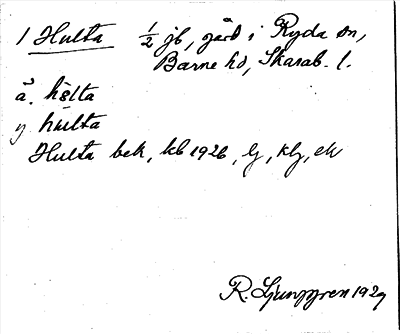 1 Hulta ½ jb, gård i Ryda sn,
Barne hd, Skarab. l.
ä. hölta
y hulta
Hulta bek, kb 1926, lj, klj, ek
R. Ljunggren 1929